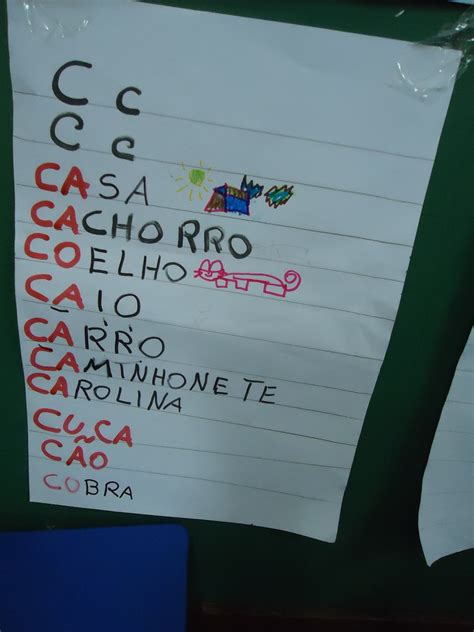 C c
C c
CASA
CACHORRO
COELHO
CAIO
CARRO
CAMINHONETE
CAROLINA
CUCA
CÃO
COBRA